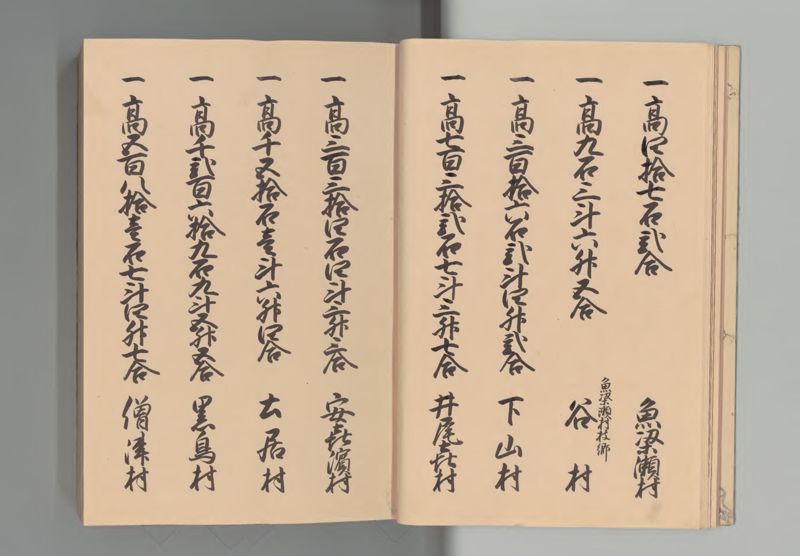 一高四拾七石弐合 魚梁瀬村
一高九石三斗六升五合 魚梁瀬村枝郷 谷村
一高三百拾六石弐斗四升弐合 下山村
一高七百三拾弐石七斗三升七合 井尾喜村
一高三百三拾四石四斗三升三合 安喜濱村
一高千五拾石壱斗六升四合 土居村
一高千弐百六拾九石九斗五升五合 黒鳥村
一高五百八拾壱石七斗四升七合 僧津村